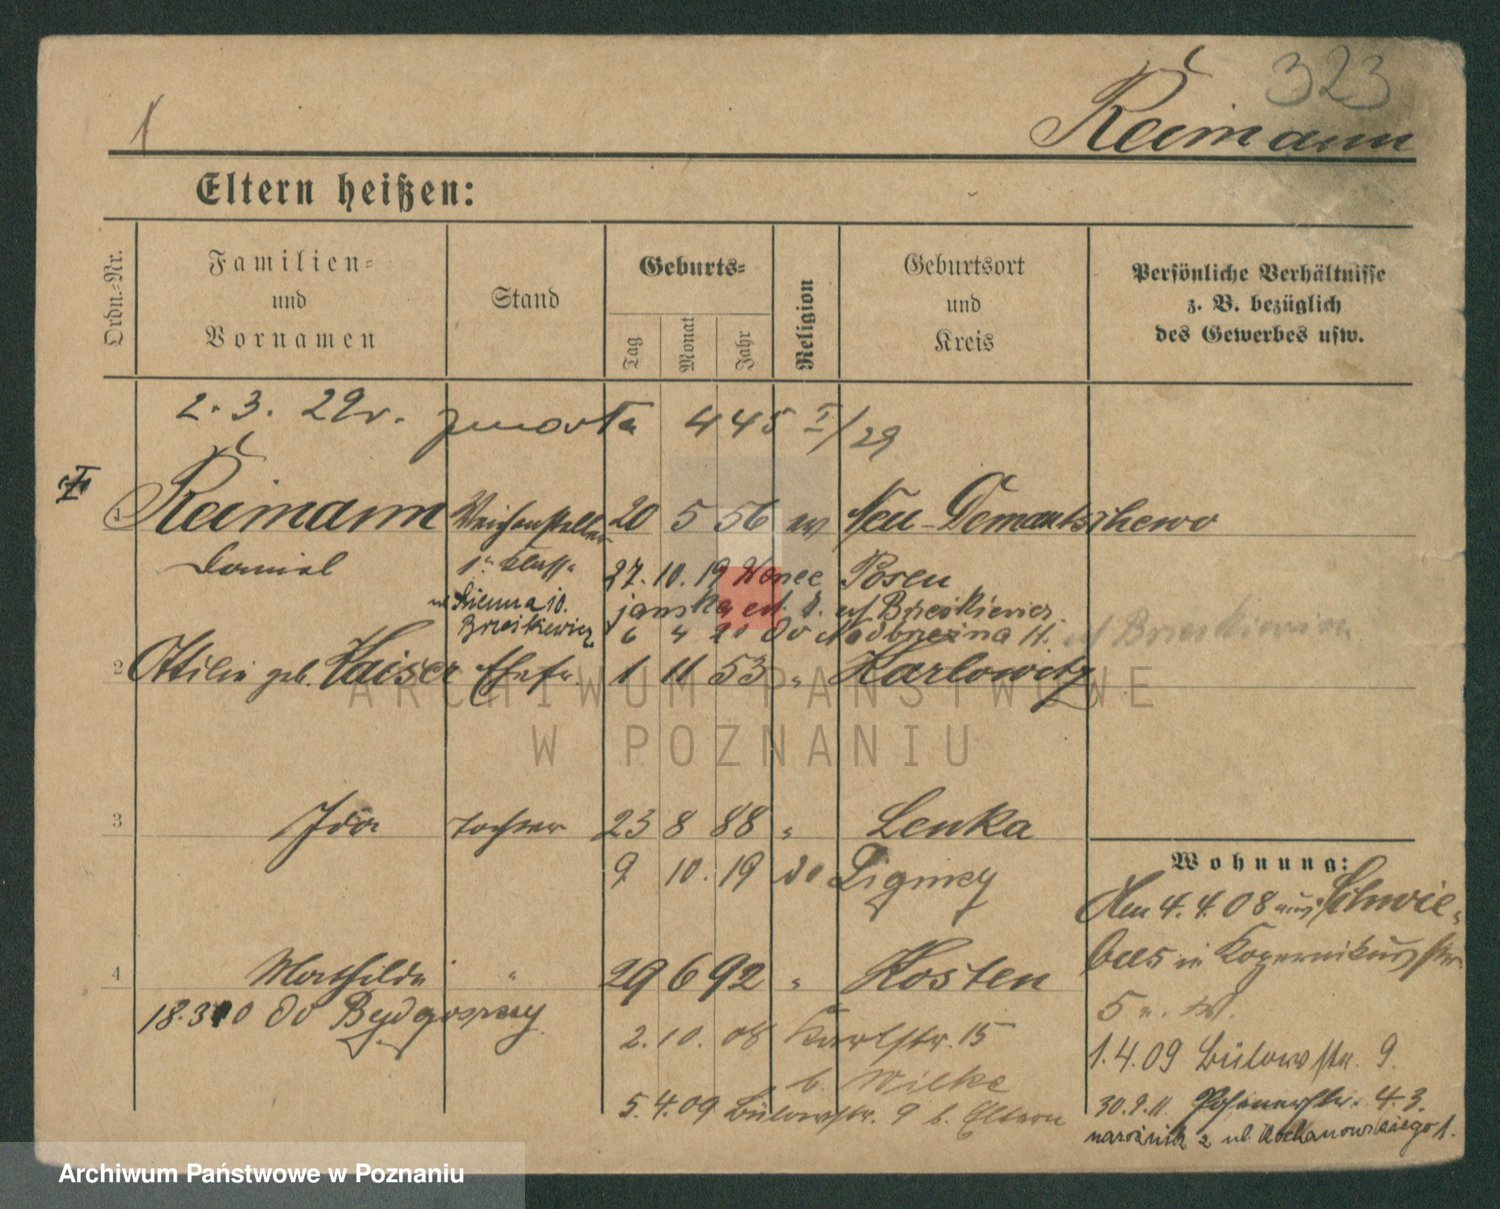 323
Reimann
Eltern heißen:
Ordn.-Nr.
Familien-
und
Vornamen
Stand
Geburts-
Tag
Monat
Jahr
Religion
Geburtsort
und
Kreis
Persönliche Verhältnisse
z. B. bezüglich
des Gewerbes usw.
2. 3. 29 r. zmarła 445 I/29
1 Reimann Weichensteller 20 5 56 ev Neu-Demantschewo
Daniel 1. Klasse 27. 10. 19 Posen
Sienna 10.
6 4 20 do Nadbrzeżna 11.
2 Ottilie geb. Kaiser Ehefr. 1 11 53 " Karlowitz
3 Ida Tochter 23 8 88 " Lenka
9 10. 19 do Lignicy
4 Mathilde " 29 6 92 " Kosten
do Bydgoszczy
2. 10. 08 Karlstr. 15
b. Wilke
5. 4. 09 Bülowstr. 9 b. Eltern
Wohnung:
Am 4. 4. 08 aus Schwie-
bus in Kopernikusstr
5
1. 4. 09 Bülowstr. 9.
30. 9. 11 Posenerstr. 43.
narożnik 2 ul. Kochanowskiego 1.
ARCHIWUM PAŃSTWOWE
W POZNANIU
Archiwum Państwowe w Poznaniu